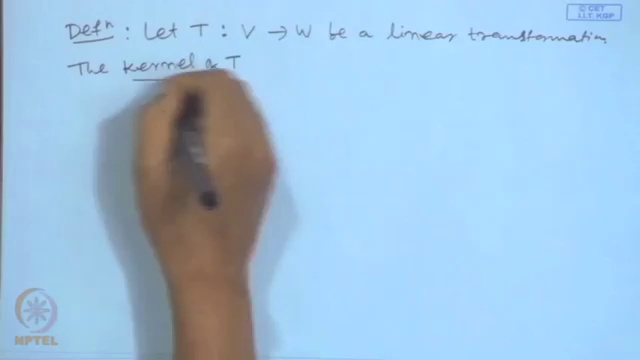 © CET
I.I.T. KGP
Defⁿ : Let T : V → W be a linear transformation,
The Kernel of T
NPTEL